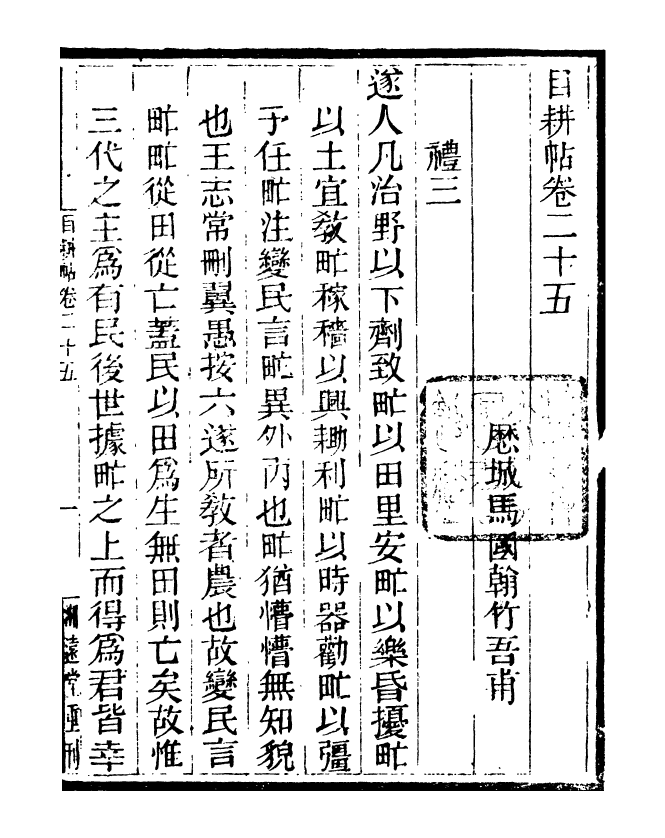 目耕帖卷二十五
歷城馬國翰竹吾甫
禮三
遂人凡治野以下劑致甿以田里安甿以樂昏擾甿
以土宜教甿稼穡以興耡利甿以時器勸甿以彊
予任甿注變民言甿異外內也甿猶懵懵無知貌
也王志常刪翼愚按六遂所教者農也故變民言
甿甿從田從亡蓋民以田為生無田則亡矣故惟
三代之主為有民後世據甿之上而得為君皆幸
目耕帖卷二十五
一
湘遠堂重刊